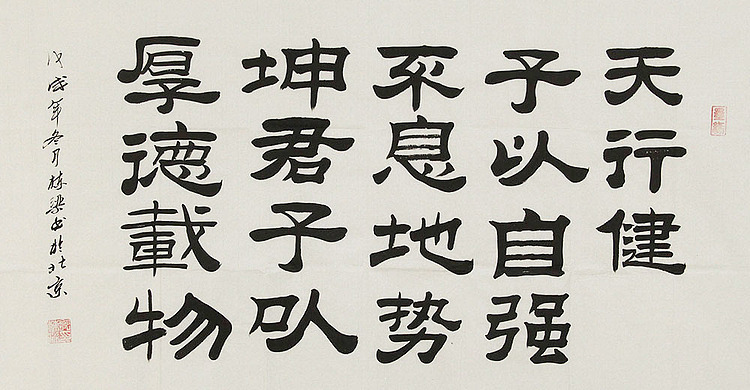 天行健
子以自强
不息地势
坤君子以
厚德載物
戊戌年冬月栋梁书於北京